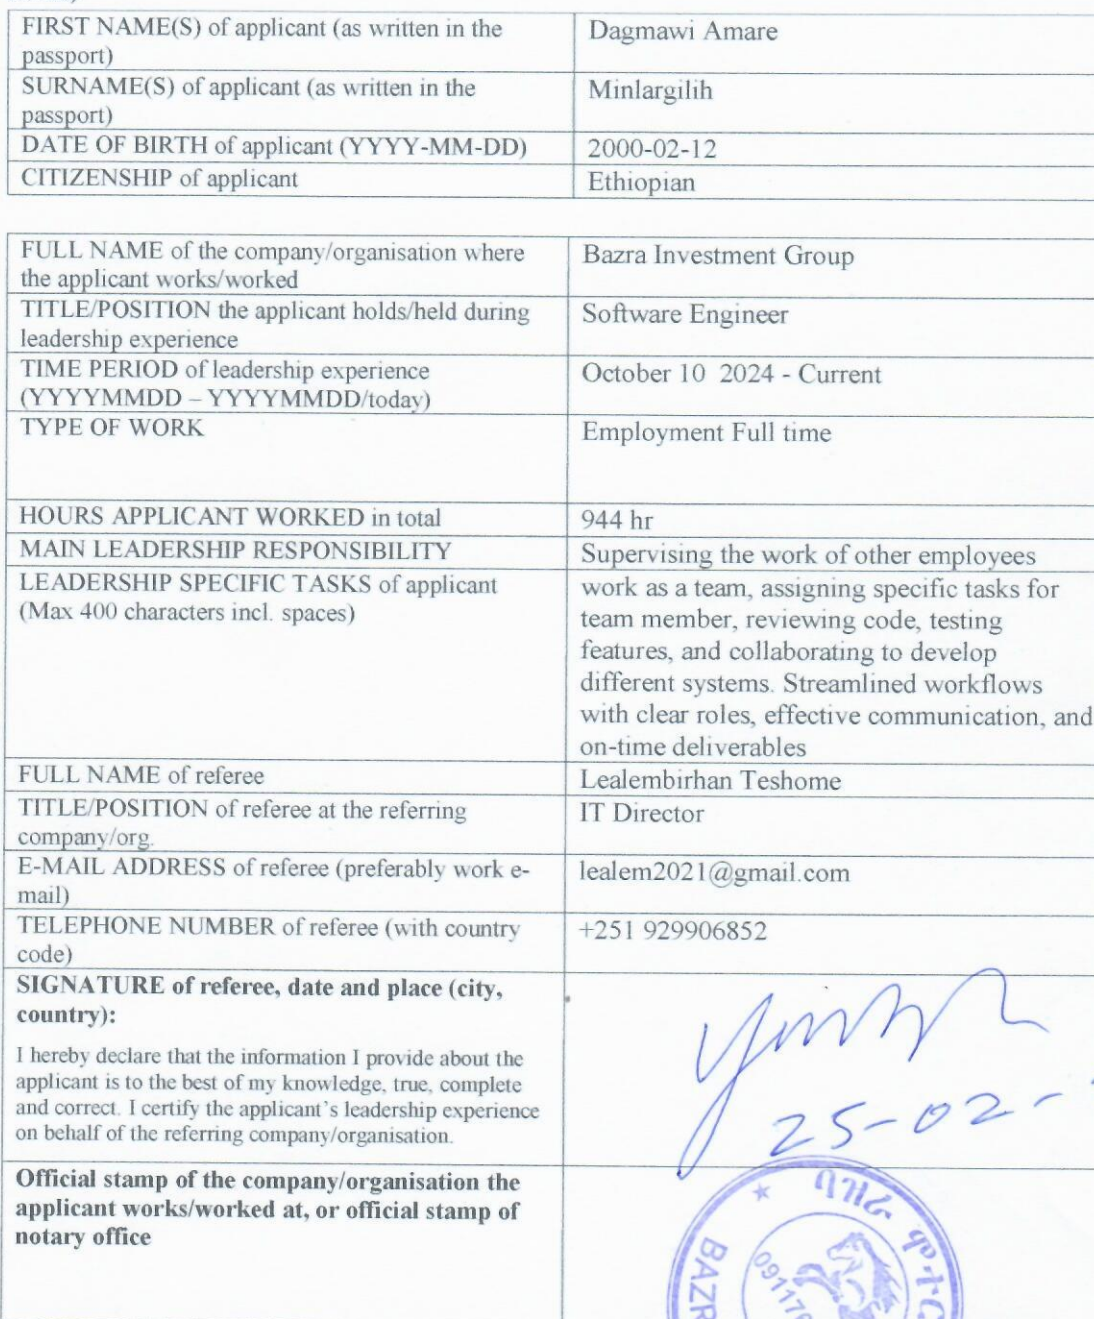 FIRST NAME(S) of applicant (as written in the
passport)
Dagmawi Amare
SURNAME(S) of applicant (as written in the
passport)
Minlargilih
DATE OF BIRTH of applicant (YYYY-MM-DD)
2000-02-12
CITIZENSHIP of applicant
Ethiopian
FULL NAME of the company/organisation where
the applicant works/worked
Bazra Investment Group
TITLE/POSITION the applicant holds/held during
leadership experience
Software Engineer
TIME PERIOD of leadership experience
(YYYYMMDD – YYYYMMDD/today)
October 10 2024 - Current
TYPE OF WORK
Employment Full time
HOURS APPLICANT WORKED in total
944 hr
MAIN LEADERSHIP RESPONSIBILITY
Supervising the work of other employees
LEADERSHIP SPECIFIC TASKS of applicant
(Max 400 characters incl. spaces)
work as a team, assigning specific tasks for
team member, reviewing code, testing
features, and collaborating to develop
different systems. Streamlined workflows
with clear roles, effective communication, and
on-time deliverables
FULL NAME of referee
Lealembirhan Teshome
TITLE/POSITION of referee at the referring
company/org.
IT Director
E-MAIL ADDRESS of referee (preferably work e-
mail)
lealem2021@gmail.com
TELEPHONE NUMBER of referee (with country
code)
+251 929906852
SIGNATURE of referee, date and place (city,
country):
I hereby declare that the information I provide about the
applicant is to the best of my knowledge, true, complete
and correct. I certify the applicant's leadership experience
on behalf of the referring company/organisation.
25-02-
Official stamp of the company/organisation the
applicant works/worked at, or official stamp of
notary office
ባዝራ ሞተር
BAZR
091176